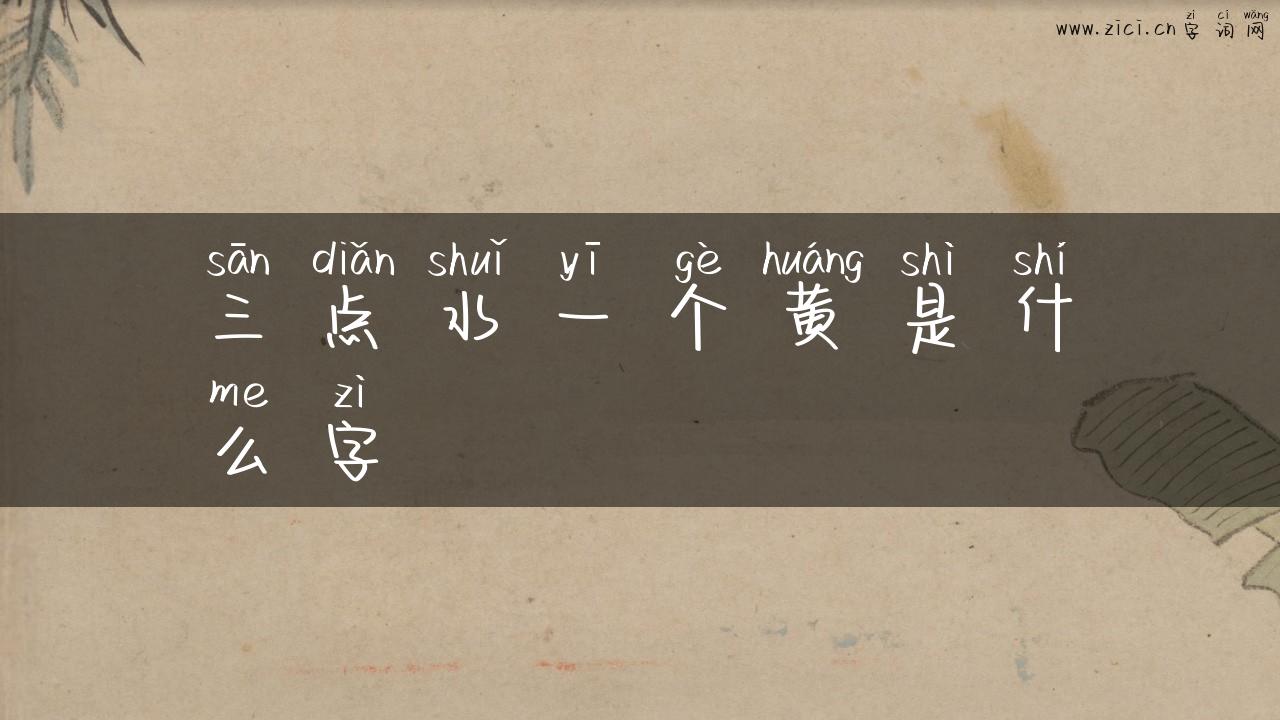 zì cí wǎng
www.zici.cn 字词网
sān diǎn shuǐ yī gè huáng shì shí
三点水一个黄是什
me zì
么字